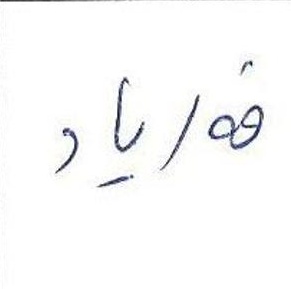 فەریاد